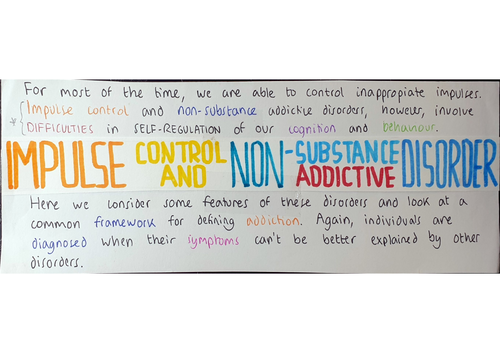 For most of the time, we are able to control inappropiate impulses.
* { Impulse control and non-substance addictive disorders, however, involve
DIFFICULTIES in SELF-REGULATION of our cognition and behaviour.
IMPULSE CONTROL AND NON-SUBSTANCE ADDICTIVE DISORDER
Here we consider some features of these disorders and look at a
common framework for defining addiction. Again, individuals are
diagnosed when their symptoms can't be better explained by other
disorders.